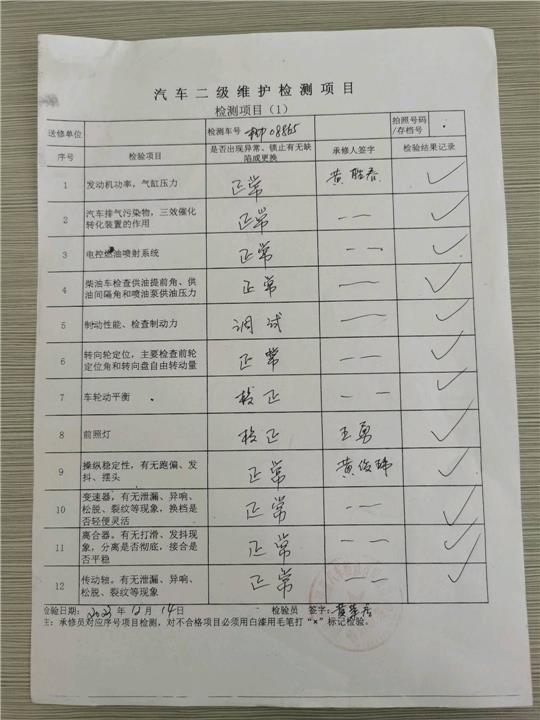 汽车二级维护检测项目
检测项目（1）
送修单位 检测车号 08865 拍照号码/存档号
序号 检验项目 是否出现异常、锁止有无缺陷或更换 承修人签字 检验结果记录
1 发动机功率，气缸压力 正常 黄胜春 ✓
2 汽车排气污染物，三效催化转化装置的作用 正常 — — ✓
3 电控燃油喷射系统 正常 — — ✓
4 柴油车检查供油提前角、供油间隔角和喷油泵供油压力 正常 — — ✓
5 制动性能、检查制动力 调试 — — ✓
6 转向轮定位，主要检查前轮定位角和转向盘自由转动量 正常 — — ✓
7 车轮动平衡 校正 — — ✓
8 前照灯 校正 王勇 ✓
9 操纵稳定性，有无跑偏、发抖、摆头 正常 黄俊 ✓
10 变速器，有无泄漏、异响、松脱、裂纹等现象，换档是否轻便灵活 正常 — — ✓
11 离合器，有无打滑、发抖现象，分离是否彻底，接合是否平稳 正常 — — ✓
12 传动轴，有无泄漏、异响、松脱、裂纹等现象 正常 — — ✓
检验日期： 年 12 月 14 日 检验员 签字：
注：承修员对应序号项目检测，对不合格项目必须用白漆用毛笔打“×”标记检验。